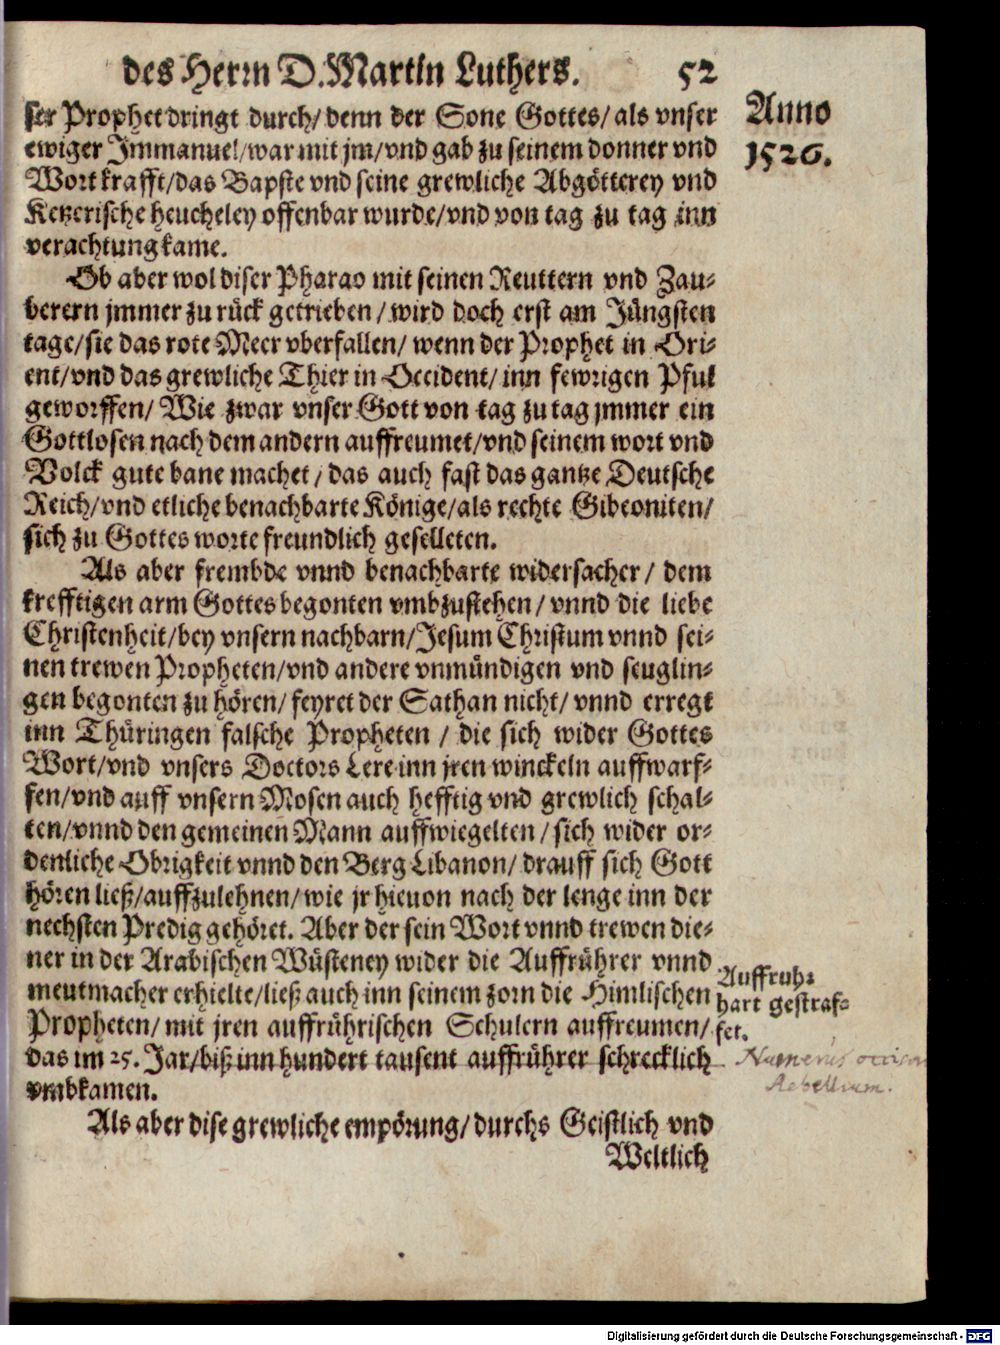 des Herrn D. Martin Luthers. 52
Anno
1526.
ser Prophet dringt durch/ denn der Sone Gottes/ als vnser
ewiger Immanuel/ war mit jm/ vnd gab zu seinem donner vnd
Wort krafft/ das Bapsts vnd seine grewliche Abgötterey vnd
Ketzerische heucheley offenbar wurde/ vnd von tag zu tag inn
verachtung kame.
Ob aber wol diser Pharao mit seinen Reuttern vnd Zau-
berern jmmer zu rück getrieben/ wird doch erst am Jüngsten
tage/ sie das rote Meer vberfallen/ wenn der Prophet in Ori-
ent/ vnd das grewliche Thier in Occident/ inn fewrigen Pful
geworffen/ Wie zwar vnser Gott von tag zu tag jmmer ein
Gottlosen nach dem andern auffreumet/ vnd seinem wort vnd
Volck gute bane machet/ das auch fast das gantze Deutsche
Reich/ vnd etliche benachbarte Könige/ als rechte Gibeoniten/
sich zu Gottes worte freundlich geselleten.
Als aber frembde vnnd benachbarte widersacher/ dem
krefftigen arm Gottes begonten vmbzustehen/ vnnd die liebe
Christenheit/ bey vnsern nachbarn/ Jesum Christum vnnd sei-
nen trewen Propheten/ vnd andere vnmündigen vnd seuglin-
gen begonten zu hören/ feyret der Sathan nicht/ vnnd erregt
inn Thüringen falsche Propheten/ die sich wider Gottes
Wort/ vnd vnsers Doctors Lere inn jren winckeln auffwarf-
fen/ vnd auff vnsern Mosen auch hefftig vnd grewlich schal-
ten/ vnnd den gemeinen Mann auffwiegelten/ sich wider or-
denliche Obrigkeit vnnd den Berg Libanon/ drauff sich Gott
hören ließ/ auffzulehnen/ wie jr hieuon nach der lenge inn der
nechsten Predig gehöret. Aber der sein Wort vnnd trewen die-
ner in der Arabischen Wüsteney wider die Auffrührer vnnd
meutmacher erhielte/ ließ auch inn seinem zorn die Himlischen
Propheten/ mit jren auffrührischen Schulern auffreumen/
das im 25. Jar/ biß inn hundert tausent auffrührer schrecklich
vmbkamen.
Auffruhr
hart gestraf-
fet.
Numerus
Als aber dise grewliche empörung/ durchs Geistlich vnd
Weltlich
Digitalisierung gefördert durch die Deutsche Forschungsgemeinschaft - DFG